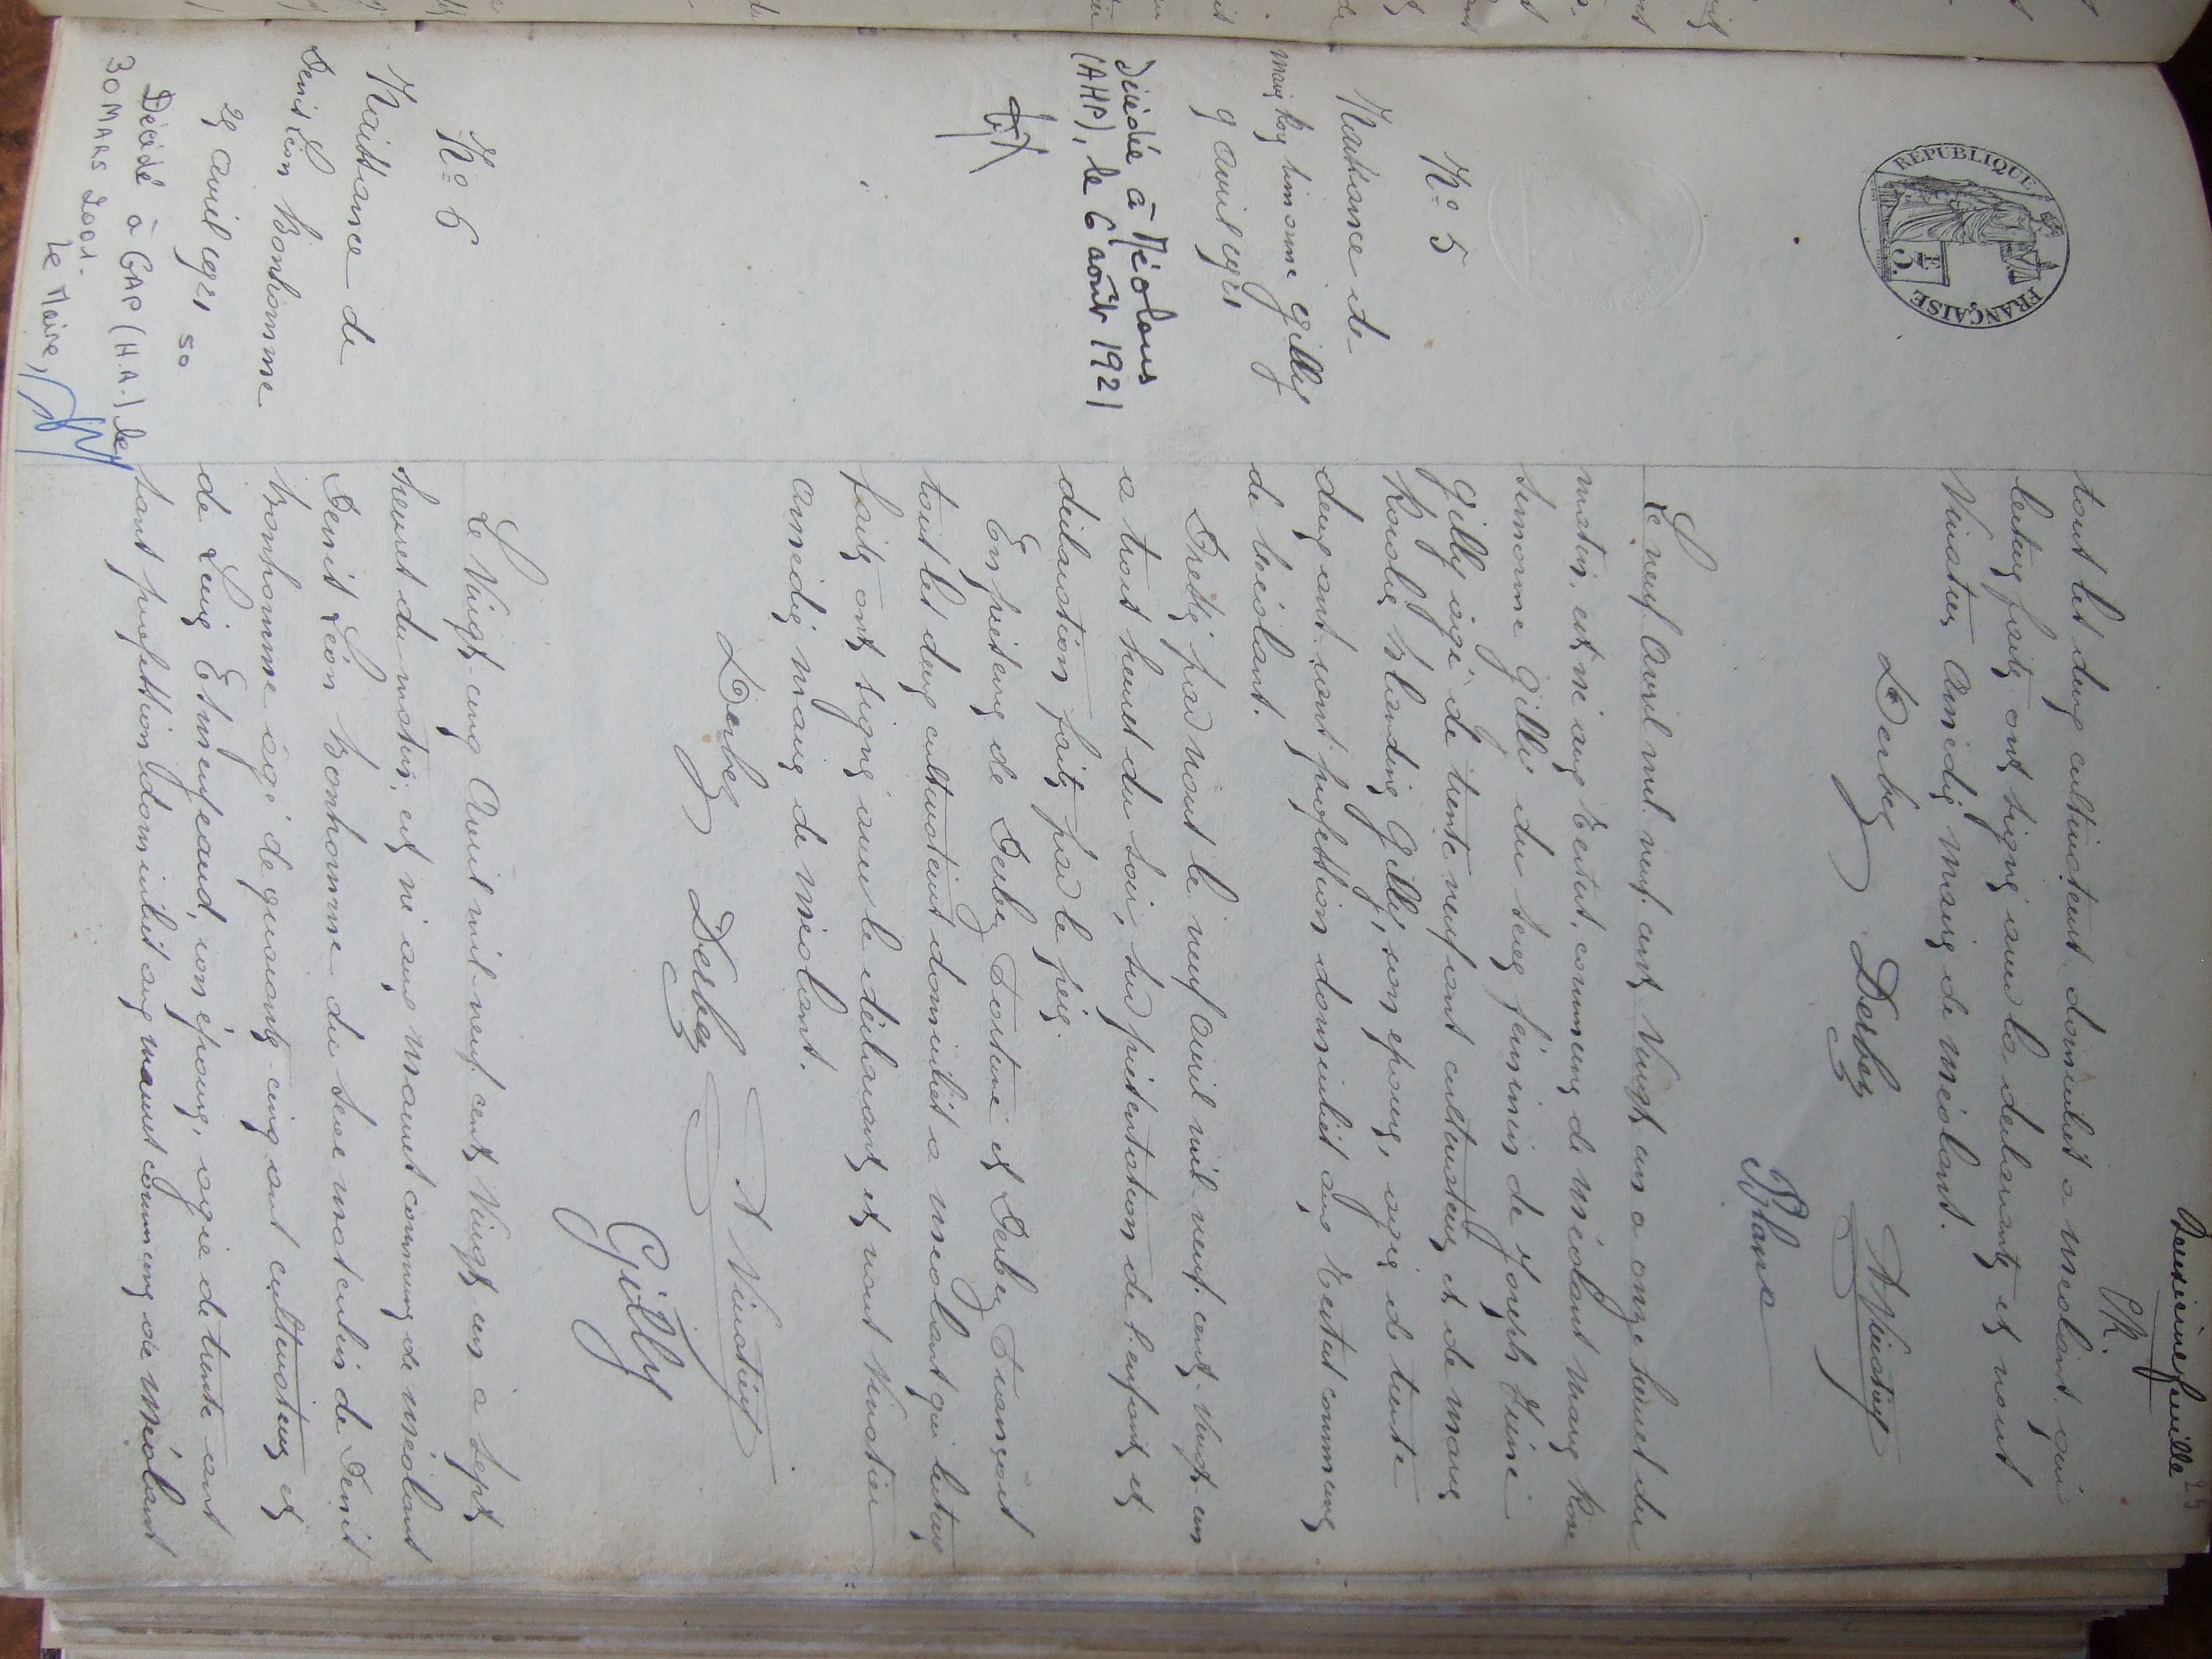 Deuxième feuille
RÉPUBLIQUE FRANÇAISE
tout les deux cultivateurs domiciliés a méolans qui
lecture faite ont signé avec le déclarant et nous
Vinatier Amédée maire de méolans.
Derbez Derbez A Vinatier
Blanc
N° 5
Naissance de
marie Rose Simonne Gilly
9 avril 1921
Décédée à Méolans
(AHP), le 6 août 1921
Le neuf Avril mil neuf cent Vingt un a onze heures du
matin, est né aux commune de méolans marie Rose
Simonne Gilly du sexe féminin de Joseph
Gilly agé de trente neuf ans cultivateur et de marie
Gilly, son épouse, agée de trente
deux ans sans profession domiciliés aux commune
de méolans.
Dressé par nous le neuf Avril mil neuf cent Vingt un
a trois heures du soir, sur présentation de l'enfant et
déclaration faite par le père.
En présence de Derbez Fortuné et Derbez François
tout les deux cultivateurs domiciliés a méolans qui lecture
faite ont signé avec le déclarant et nous Vinatier
Amédée maire de méolans.
Derbez Derbez A Vinatier
Gilly
N° 6
Naissance de
Denis Léon Bonhomme
25 avril 1921
Décédé à GAP (H.A.) le
30 MARS 2001.
Le Maire,
Le Vingt cinq Avril mil neuf cent Vingt un à sept
heures du matin, est né aux maures commune de méolans
Denis Léon Bonhomme du sexe masculin de Denis
Bonhomme agé de quarante cinq ans cultivateur et
de son épouse, agée de trente ans
sans profession domiciliés aux maures commune de Méolans